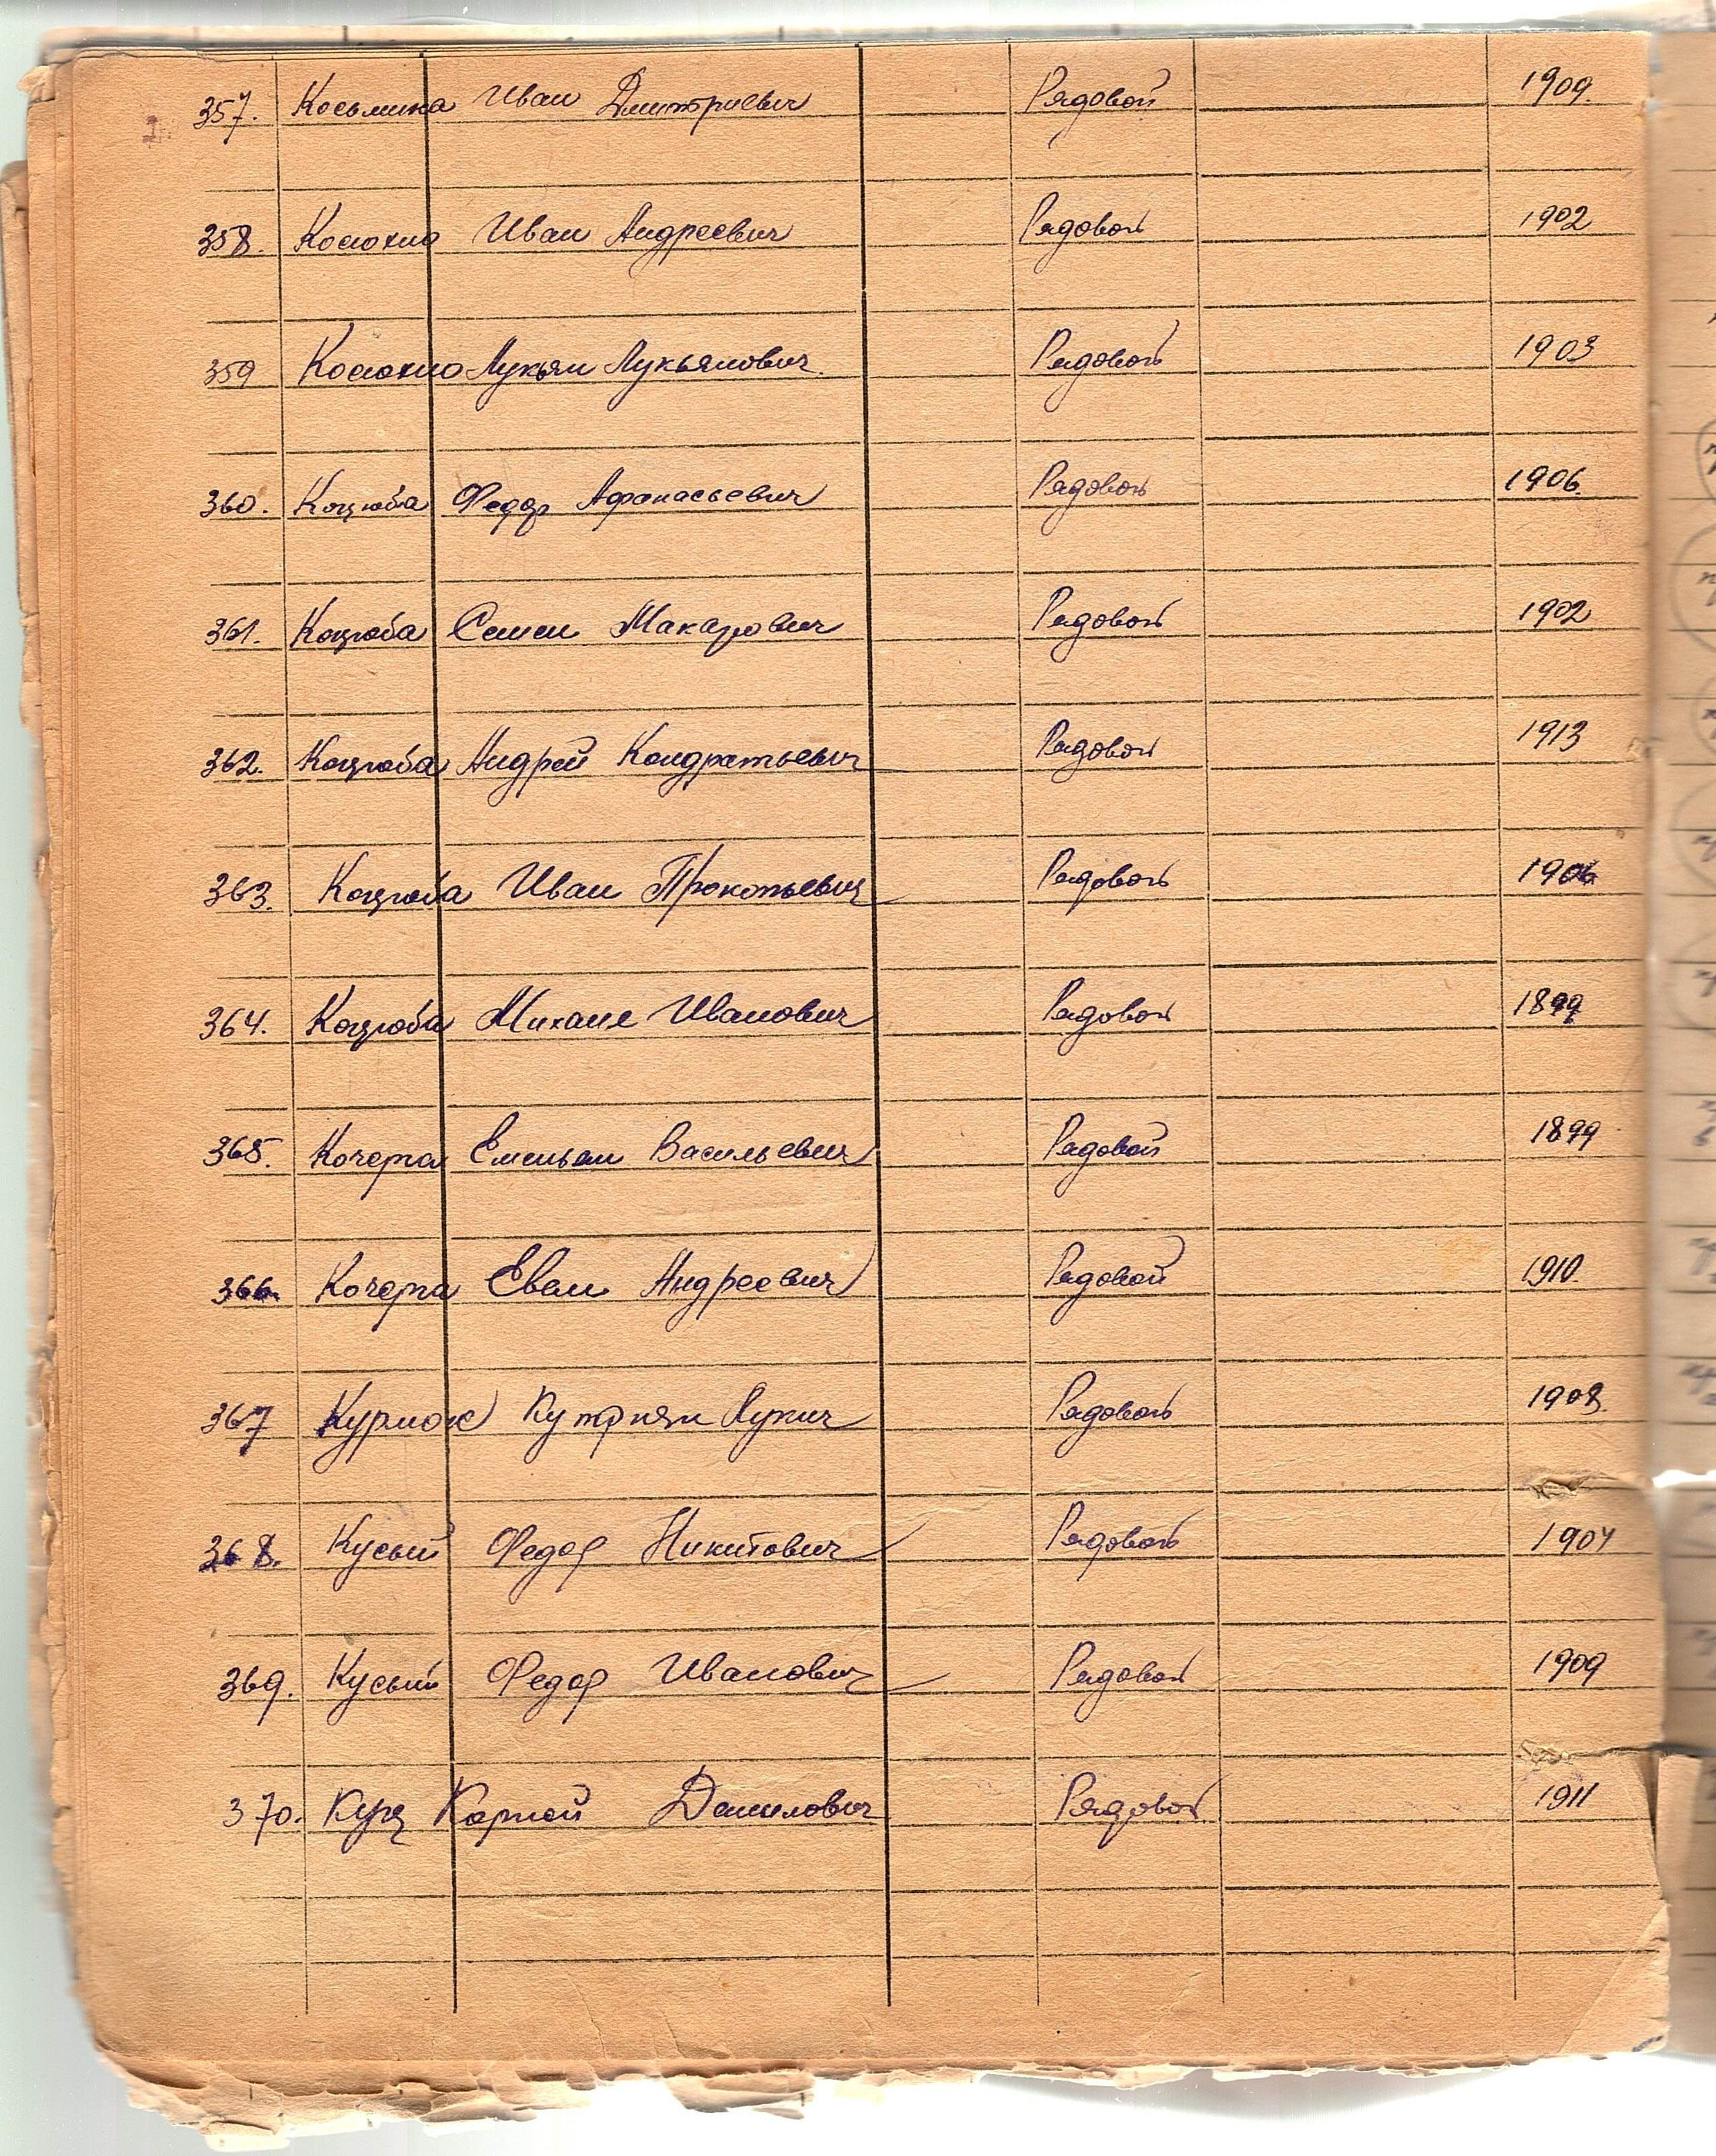 357. Косьмина Иван Дмитриевич Рядовой 1909.
358. Иван Андреевич Рядовой 1902
359 Лукьян Лукьянович. Рядовой 1903
360. Коцюба Федор Афанасьевич Рядовой 1906.
361. Коцюба Семен Макарович Рядовой 1902
362. Коцюба Андрей Кондратьевич Рядовой 1913
363. Коцюба Иван Прокопьевич Рядовой 1906
364. Коцюба Михаил Иванович Рядовой 1899
365. Кочерга Емельян Васильевич Рядовой 1899
366. Кочерга Андреевич Рядовой 1910.
367 Рядовой 1908.
368. Кусый Федор Никитович Рядовой 1904
369. Кусый Федор Иванович Рядовой 1909
370. Куц Карпей Данилович Рядовой 1911